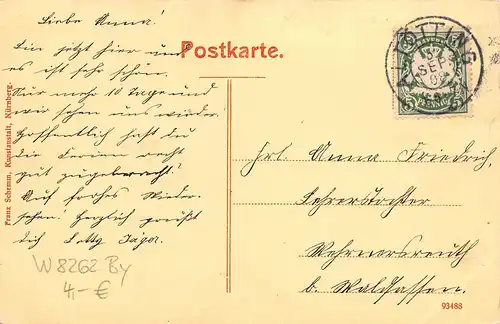 Liebe Anna!
Bin jetzt hier und
es ist sehr schön.
Nur mehr 10 Tage und
wir sehen uns wieder.
Hoffentlich hast du
die Ferien recht
gut zugebracht.
Auf frohes Wieder-
sehen! Herzlich grüßt
dich Betty Jäger.
W 8262 By
4,- €
Postkarte.
Franz Schemm, Kunstanstalt, Nürnberg.
ALTÖTTING
SEP
BAYERN
5 5
PFENNIG
Frl. Anna Friedrich,
Lehrerstochter
Wernersreuth
b. Waldsassen.
93488